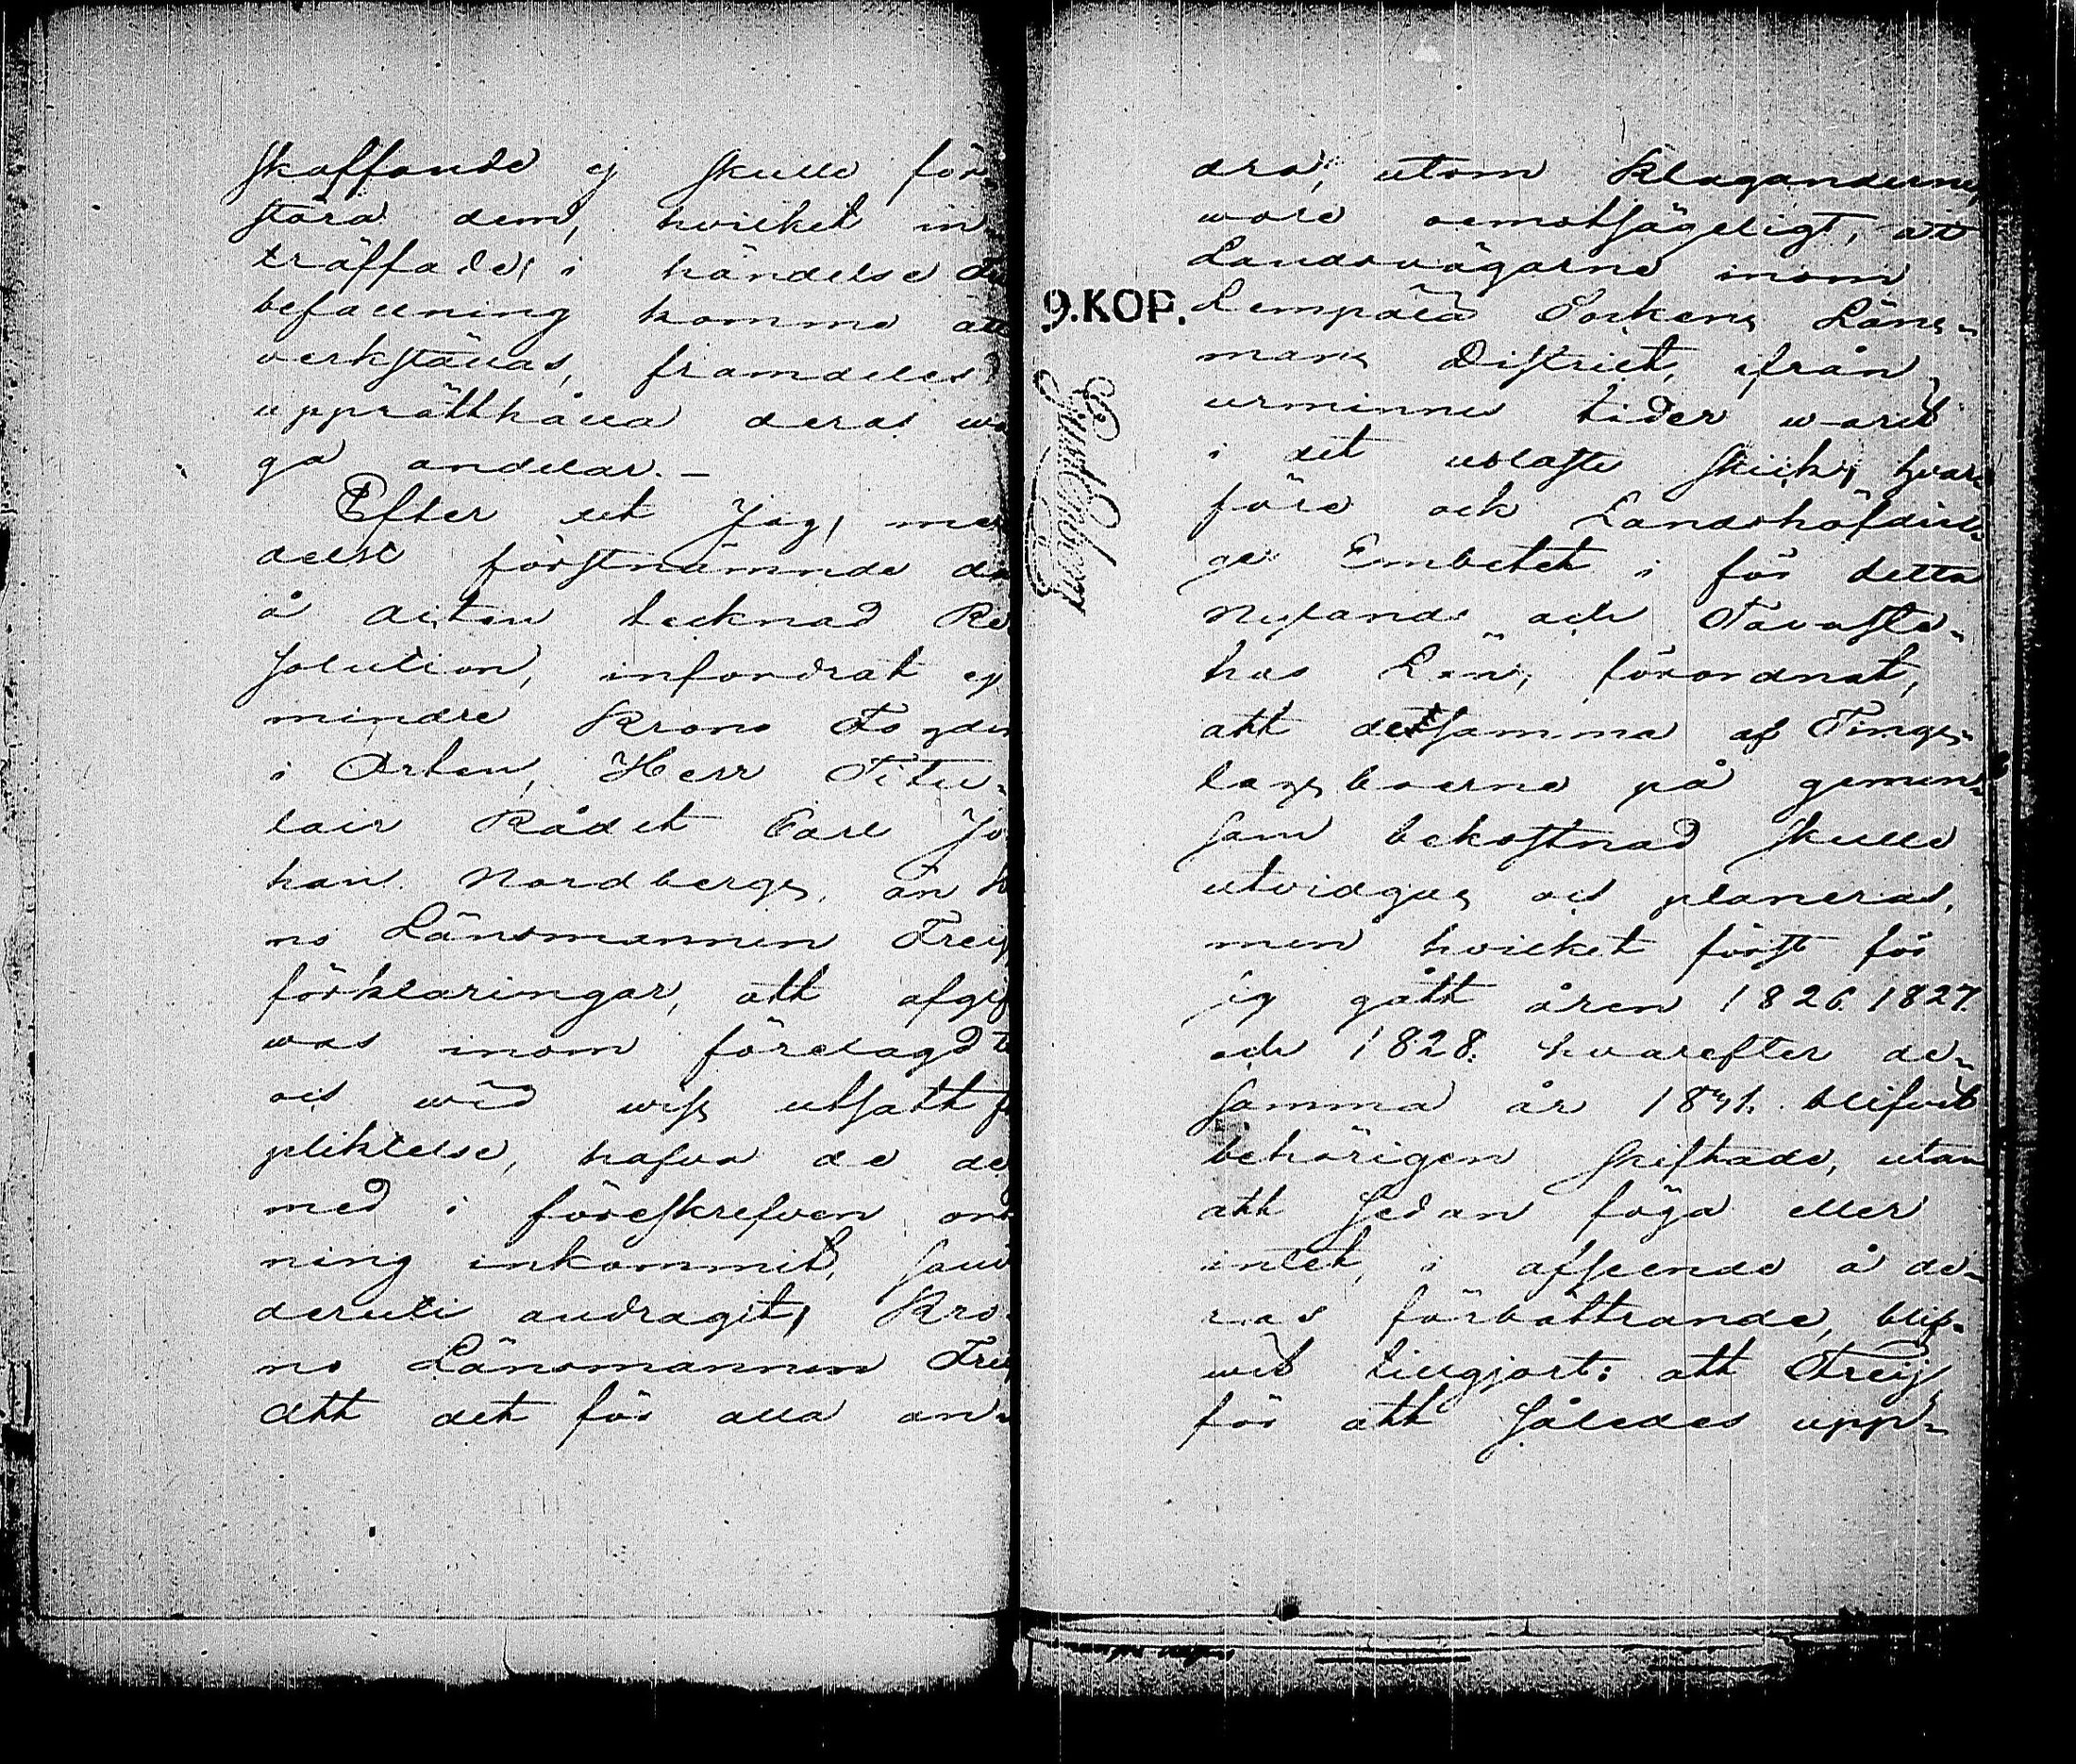 skaffande ej skulle för-
störa dem, hvilket in-
träffade, i händelse de
befallning komme att
verkställas, framdeles
upprätthålla deras wä
ga andelar. —
Efter det Jag, me
delst förstnämnde da
å acten tecknad Re
solution, infordrat ej
mindre Krono Fogden
i Orten, Herr Titu-
lair Rådet Carl Jo
han Nordbergs, än K
no Länsmannen Freij
förklaringar, att afgif
was inom förelagd t
och wid wiss utsatt f
pliktelse, hafva de de
med i föreskrefven ord
ning inkommit, samt
deruti andragit, Kro-
no Länsmannen Freij
Att det för alla an-
dra, utom Klaganderne,
wore oemotsägeligt, att
Landsvägarne inom
9.KOP. Lempälä Sockens Läns-
mans District, ifrån
urminnes tider warit
i det uslaste skick, hvar-
före och Landshöfdin-
ge Embetet i för detta
Nylands och Tavaste-
hus Län, förordnat,
att detsamma af Tings-
lagsboerne på gemen-
sam bekostnad skulle
utvidgas och planeras,
men hvilket först för
sig gått åren 1826. 1827.
och 1828. hvarefter de-
samma år 1841. blifvit
behörigen skiftade, utan
att sedan föga eller
intet, i afseende å de-
ras förbättrande, blif-
vit tillgjort: att Freij,
för att således upp-